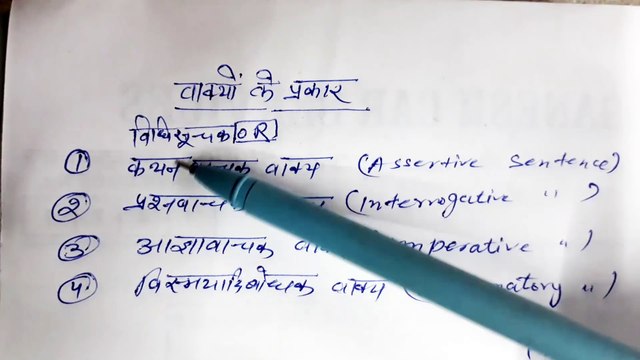 वाक्यों के प्रकार
विधिसूचक OR
① कथन वाचक वाक्य (Assertive Sentence)
② प्रश्नवाच (Interrogative " )
③ आज्ञावाचक वा mperative " )
④ विस्मयादिबोधक वाक्य ( matory " )